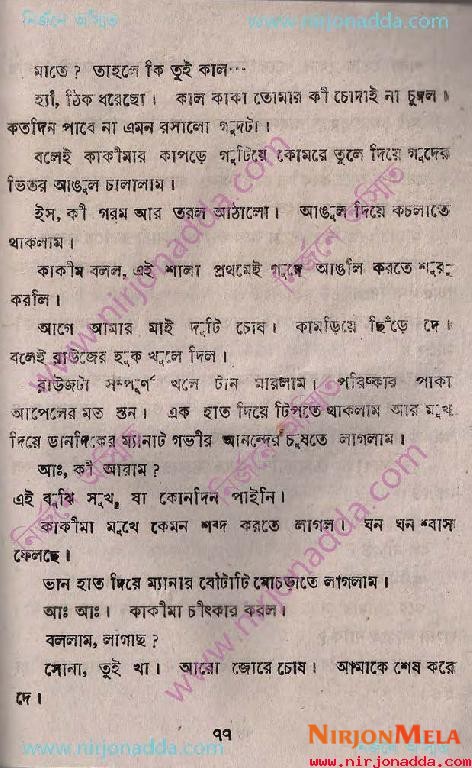 নির্জনে অস্মিত www.nirjonadda.com
মাতে ? তাহলে কি তুই কাল···
হ্যাঁ, ঠিক ধরেছো । কাল কাকা তোমার কী চোদাই না চুদল ।
কতদিন পাবে না এমন রসালো গুদটা ।
বলেই কাকীমার কাপড়ে গুটিয়ে কোমরে তুলে দিয়ে গুদের
ভিতর আঙুল চালালাম ।
ইস, কী গরম আর তরল আঠালো । আঙুল দিয়ে কচলাতে
থাকলাম ।
কাকীম বলল, এই শালা প্রথমেই গুদে আঙলি করতে শুরু
করলি ।
আগে আমার মাই দুটি চোষ । কামড়িয়ে ছিঁড়ে দে ।
বলেই ব্লাউজের হুক খুলে দিল ।
ব্লাউজটা সম্পূর্ণ খুলে টান মারলাম । পরিষ্কার পাকা
আপেলের মত স্তন । এক হাত দিয়ে টিপতে থাকলাম আর মুখ
দিয়ে ডানদিকের ম্যানাট গভীর আনন্দের চুষতে লাগলাম ।
আঃ, কী আরাম ?
এই বুঝি সুখ, যা কোনদিন পাইনি ।
কাকীমা মুখে কেমন শব্দ করতে লাগল । ঘন ঘন শ্বাস
ফেলছে ।
ডান হাত দিয়ে ম্যানার বোঁটাটি মোচড়াতে লাগলাম ।
আঃ আঃ । কাকীমা চীৎকার করল ।
বললাম, লাগছে ?
সোনা, তুই খা । আরো জোরে চোষ । আমাকে শেষ করে
দে ।
৭৭
NIRJONMELA
www.nirjonadda.com
www.nirjonadda.com